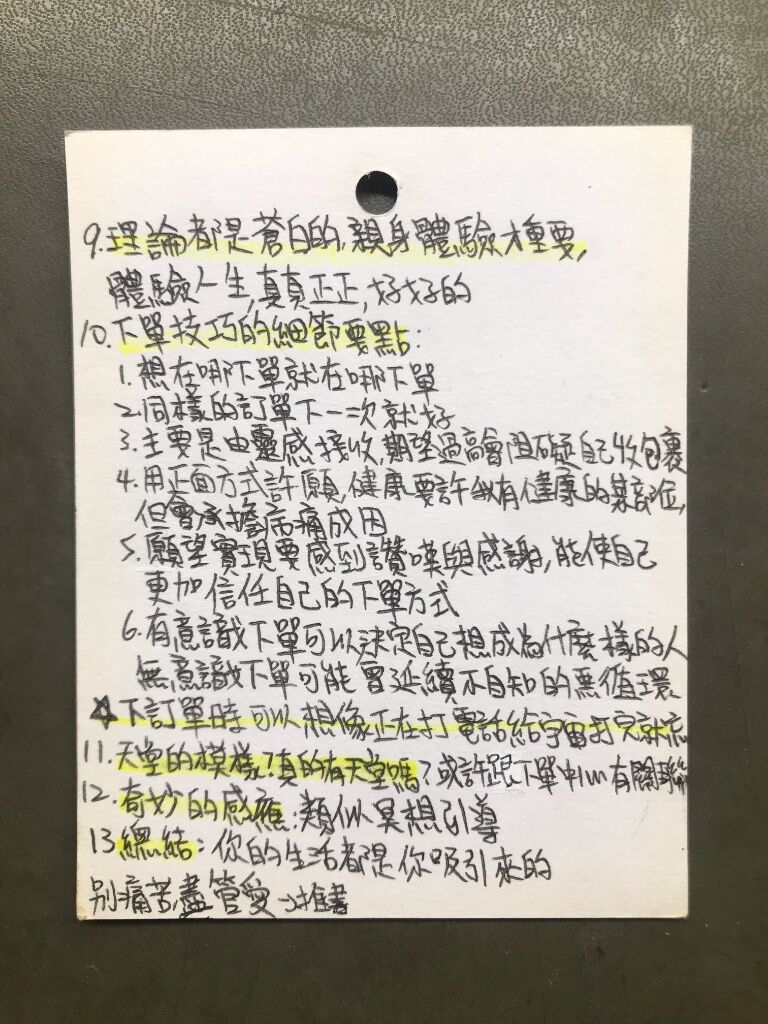 9.理論都是蒼白的,親身體驗才重要,
體驗人生,真真正正,好好的
10.下單技巧的細節要點:
1.想在哪下單就在哪下單
2.同樣的訂單下一二次就好
3.主要是由靈感接收,期望過高會阻礙自己收包裹
4.用正面方式許願,健康要許我有健康的某部位,
但會承擔病痛成因
5.願望實現要感到讚嘆與感謝,能使自己
更加信任自己的下單方式
6.有意識下單可以決定自己想成為什麼樣的人
無意識下單可能會延續不自知的惡循環
下訂單時可以想像正在打電話給宇宙打完就
11.天堂的模樣?真的有天堂嗎?或許跟下單中心有關聯
12.奇妙的感應:類似冥想引導
13總結:你的生活都是你吸引來的
別痛苦,盡管愛→推書